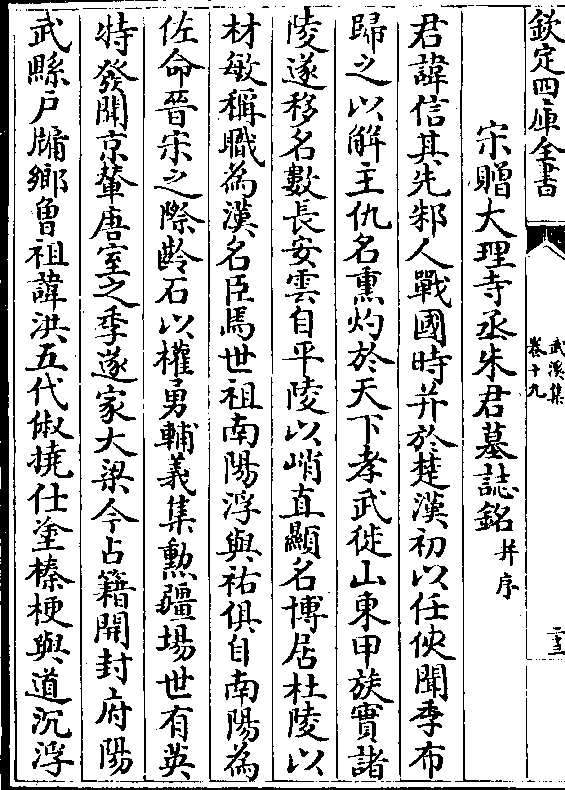 欽定四庫全書
武溪集
卷十九
二十三
宋贈大理寺丞朱君墓誌銘并序
君諱信其先邾人戰國時并於楚漢初以任俠聞季布
歸之以解主仇名熏灼於天下孝武徙山東甲族實諸
陵遂移名數長安雲自平陵以峭直顯名博居杜陵以
材敏稱職為漢名臣焉世祖南陽浮與祐俱自南陽為
佐命晉宋之際齡石以權勇輔義集勲疆場世有英
特發聞京輦唐室之季遂家大梁今占籍開封府陽
武縣戶牖鄉魯祖諱洪五代俶擾仕塗榛梗與道沉浮